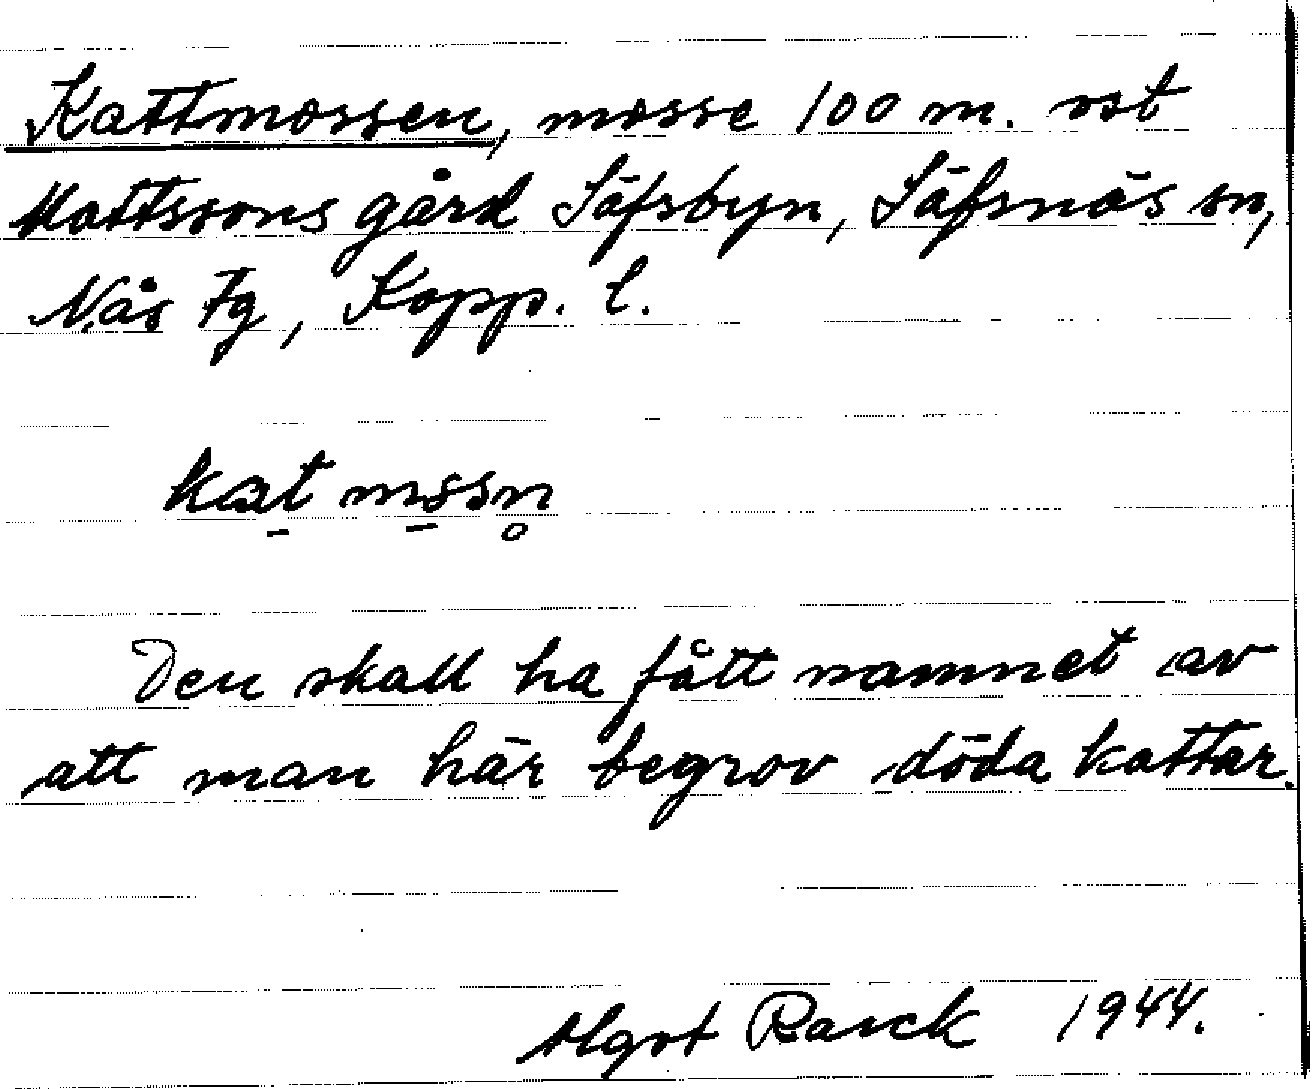 Kattmossen, mosse 100 m. ost
Mattssons gård Säfsbyn, Säfsnäs sn,
Nås Fg, Kopp. l.
kat mssn
Den skall ha fått namnet av
att man här begrov döda kattar.
Algot Rarck 1944.